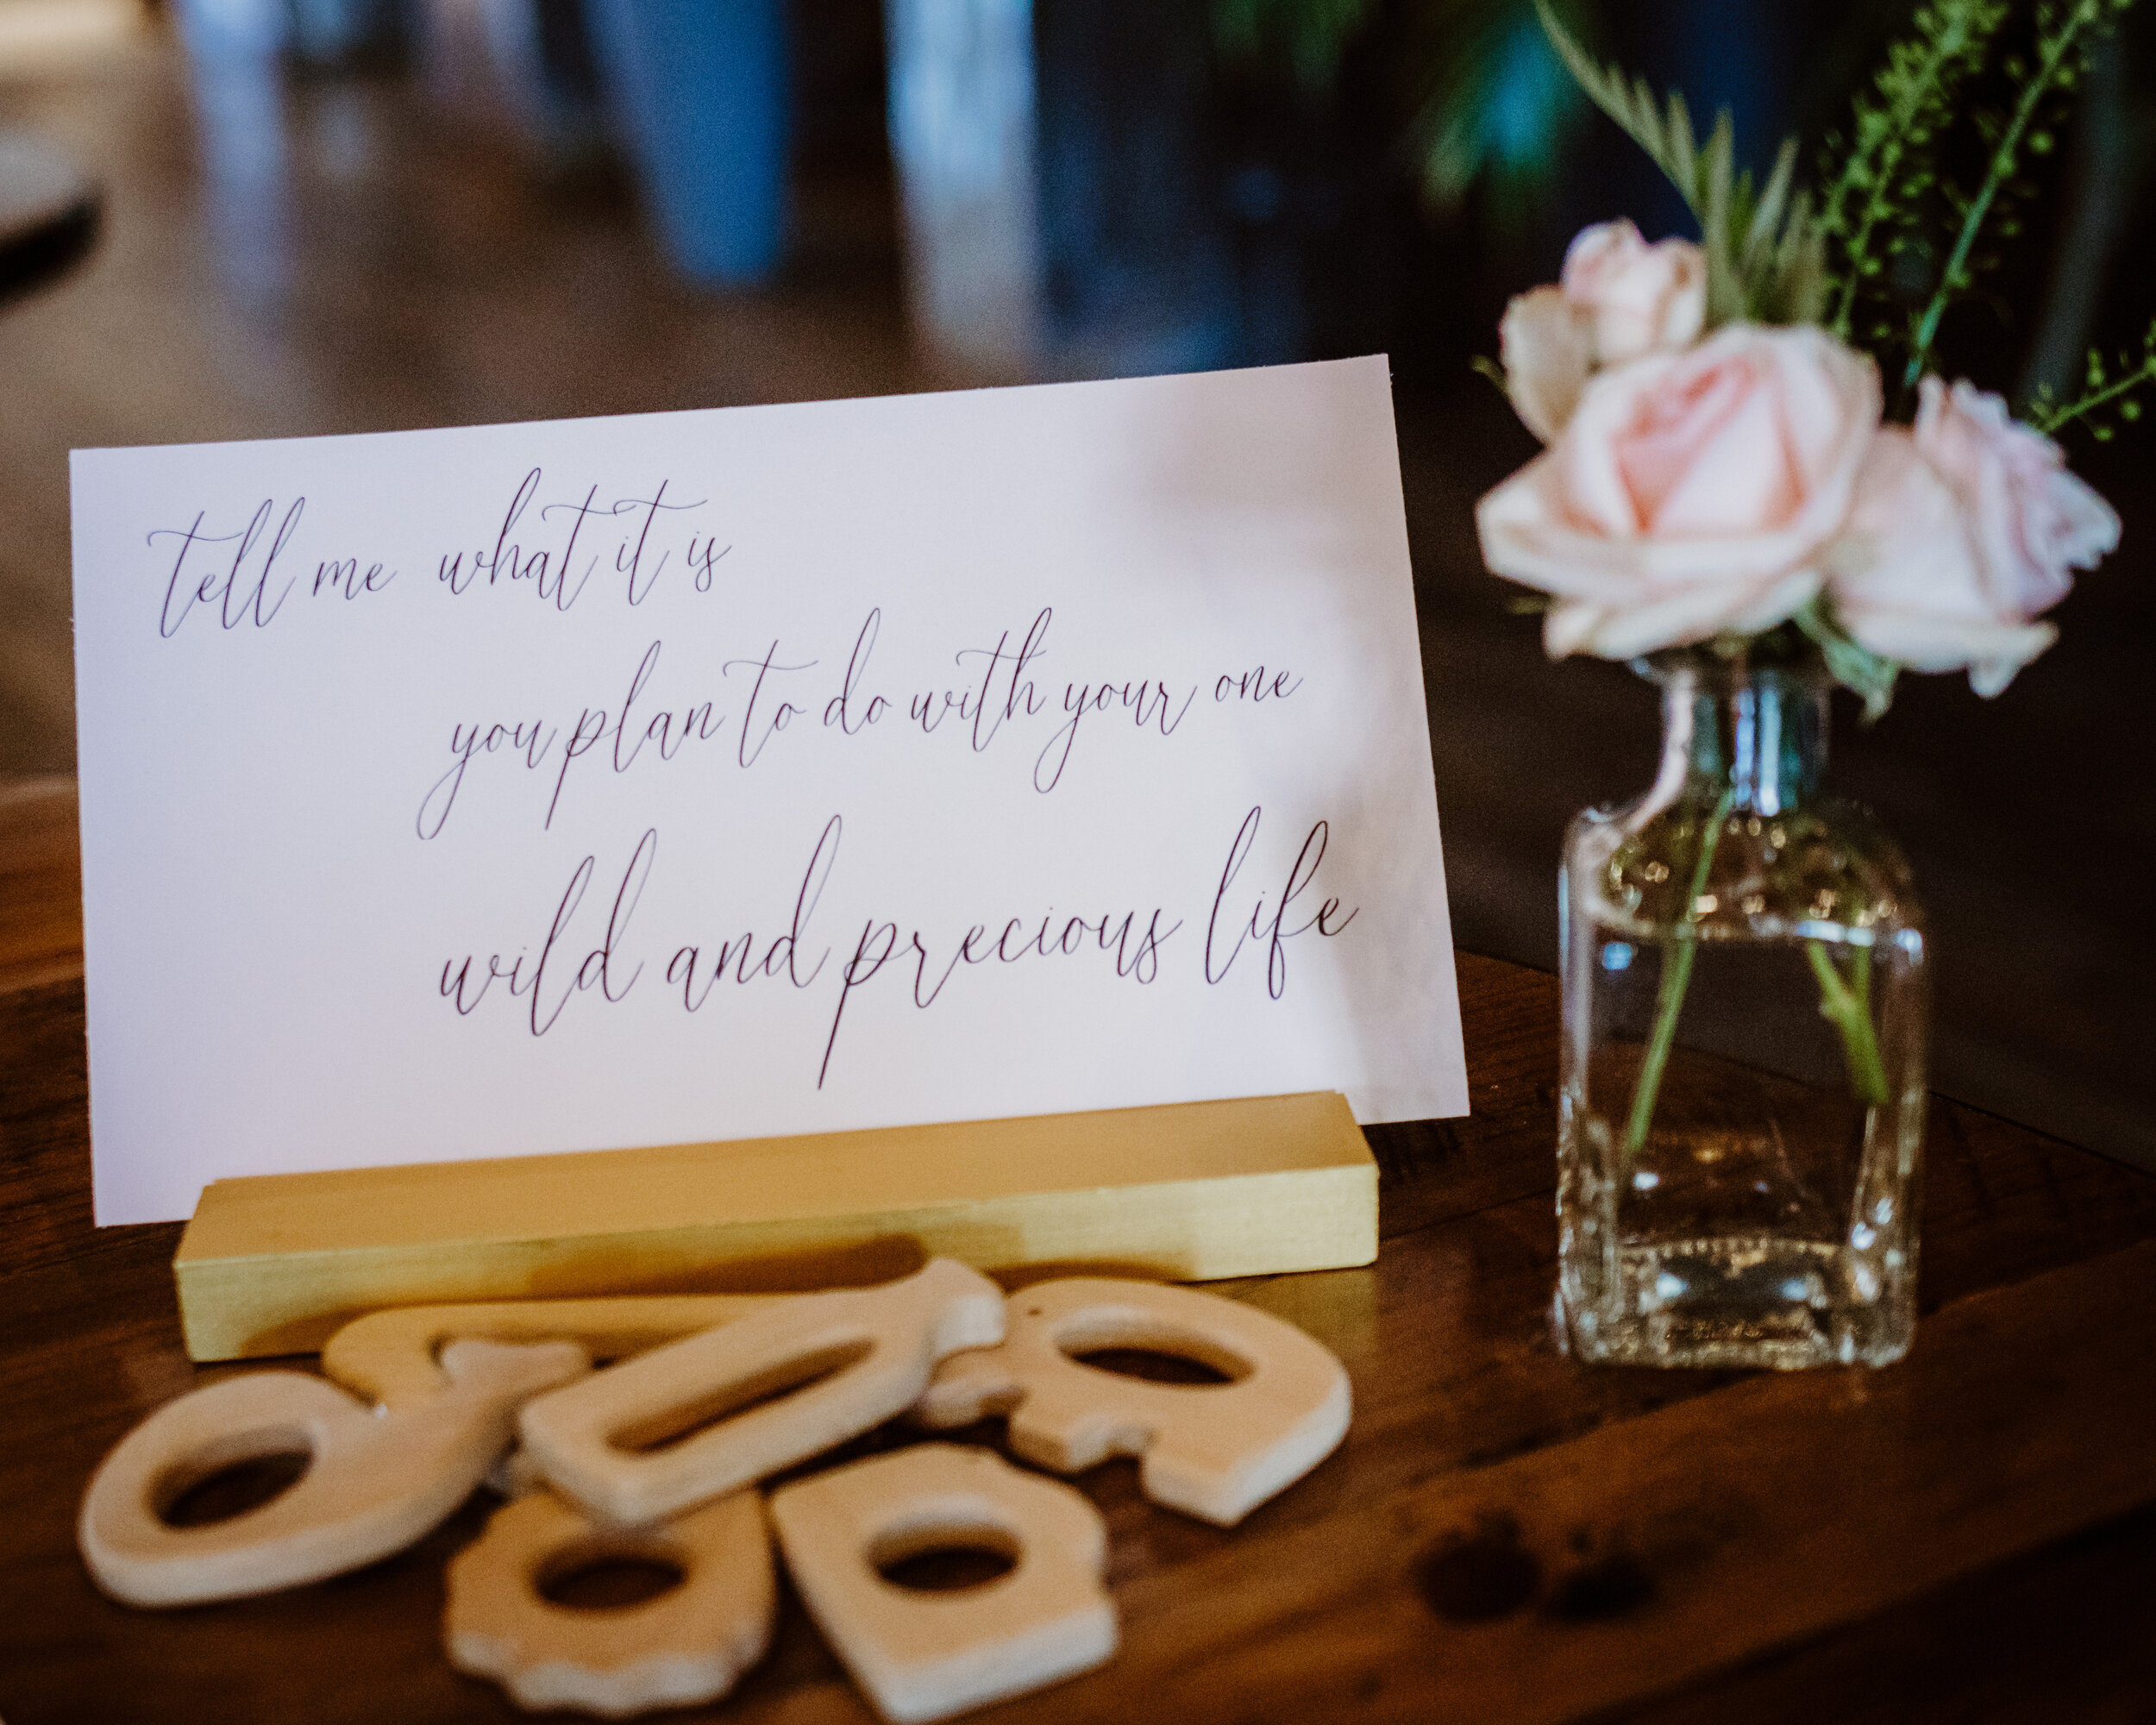 tell me what it is
you plan to do with your one
wild and precious life